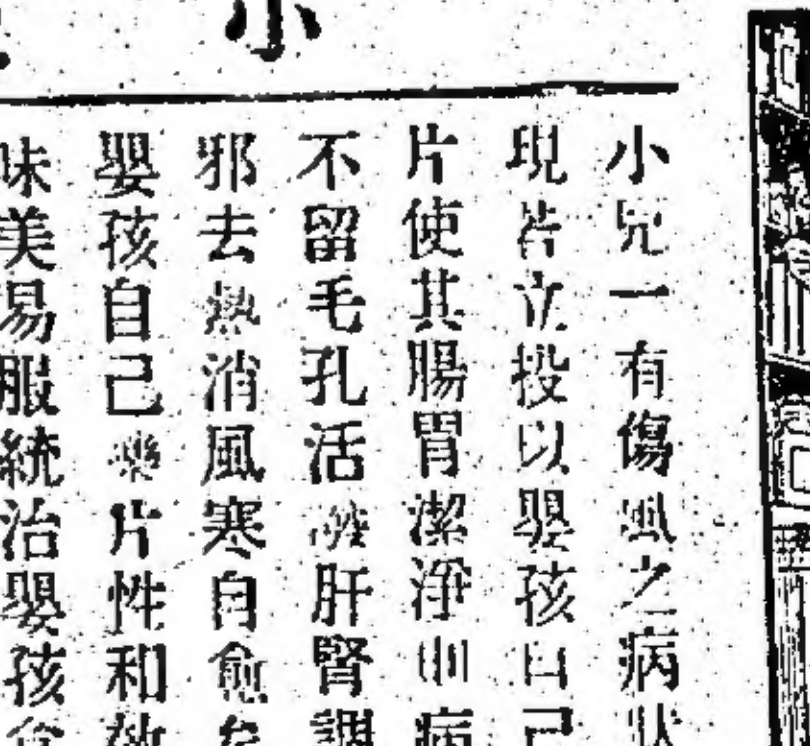 小
小兒一有傷風之病狀
現皆立投以嬰孩自己
片使其腸胃潔淨則病
不留毛孔活肝腎調
邪去熱消風寒自愈矣
嬰孩自己藥片性和效
味美易服統治嬰孩食